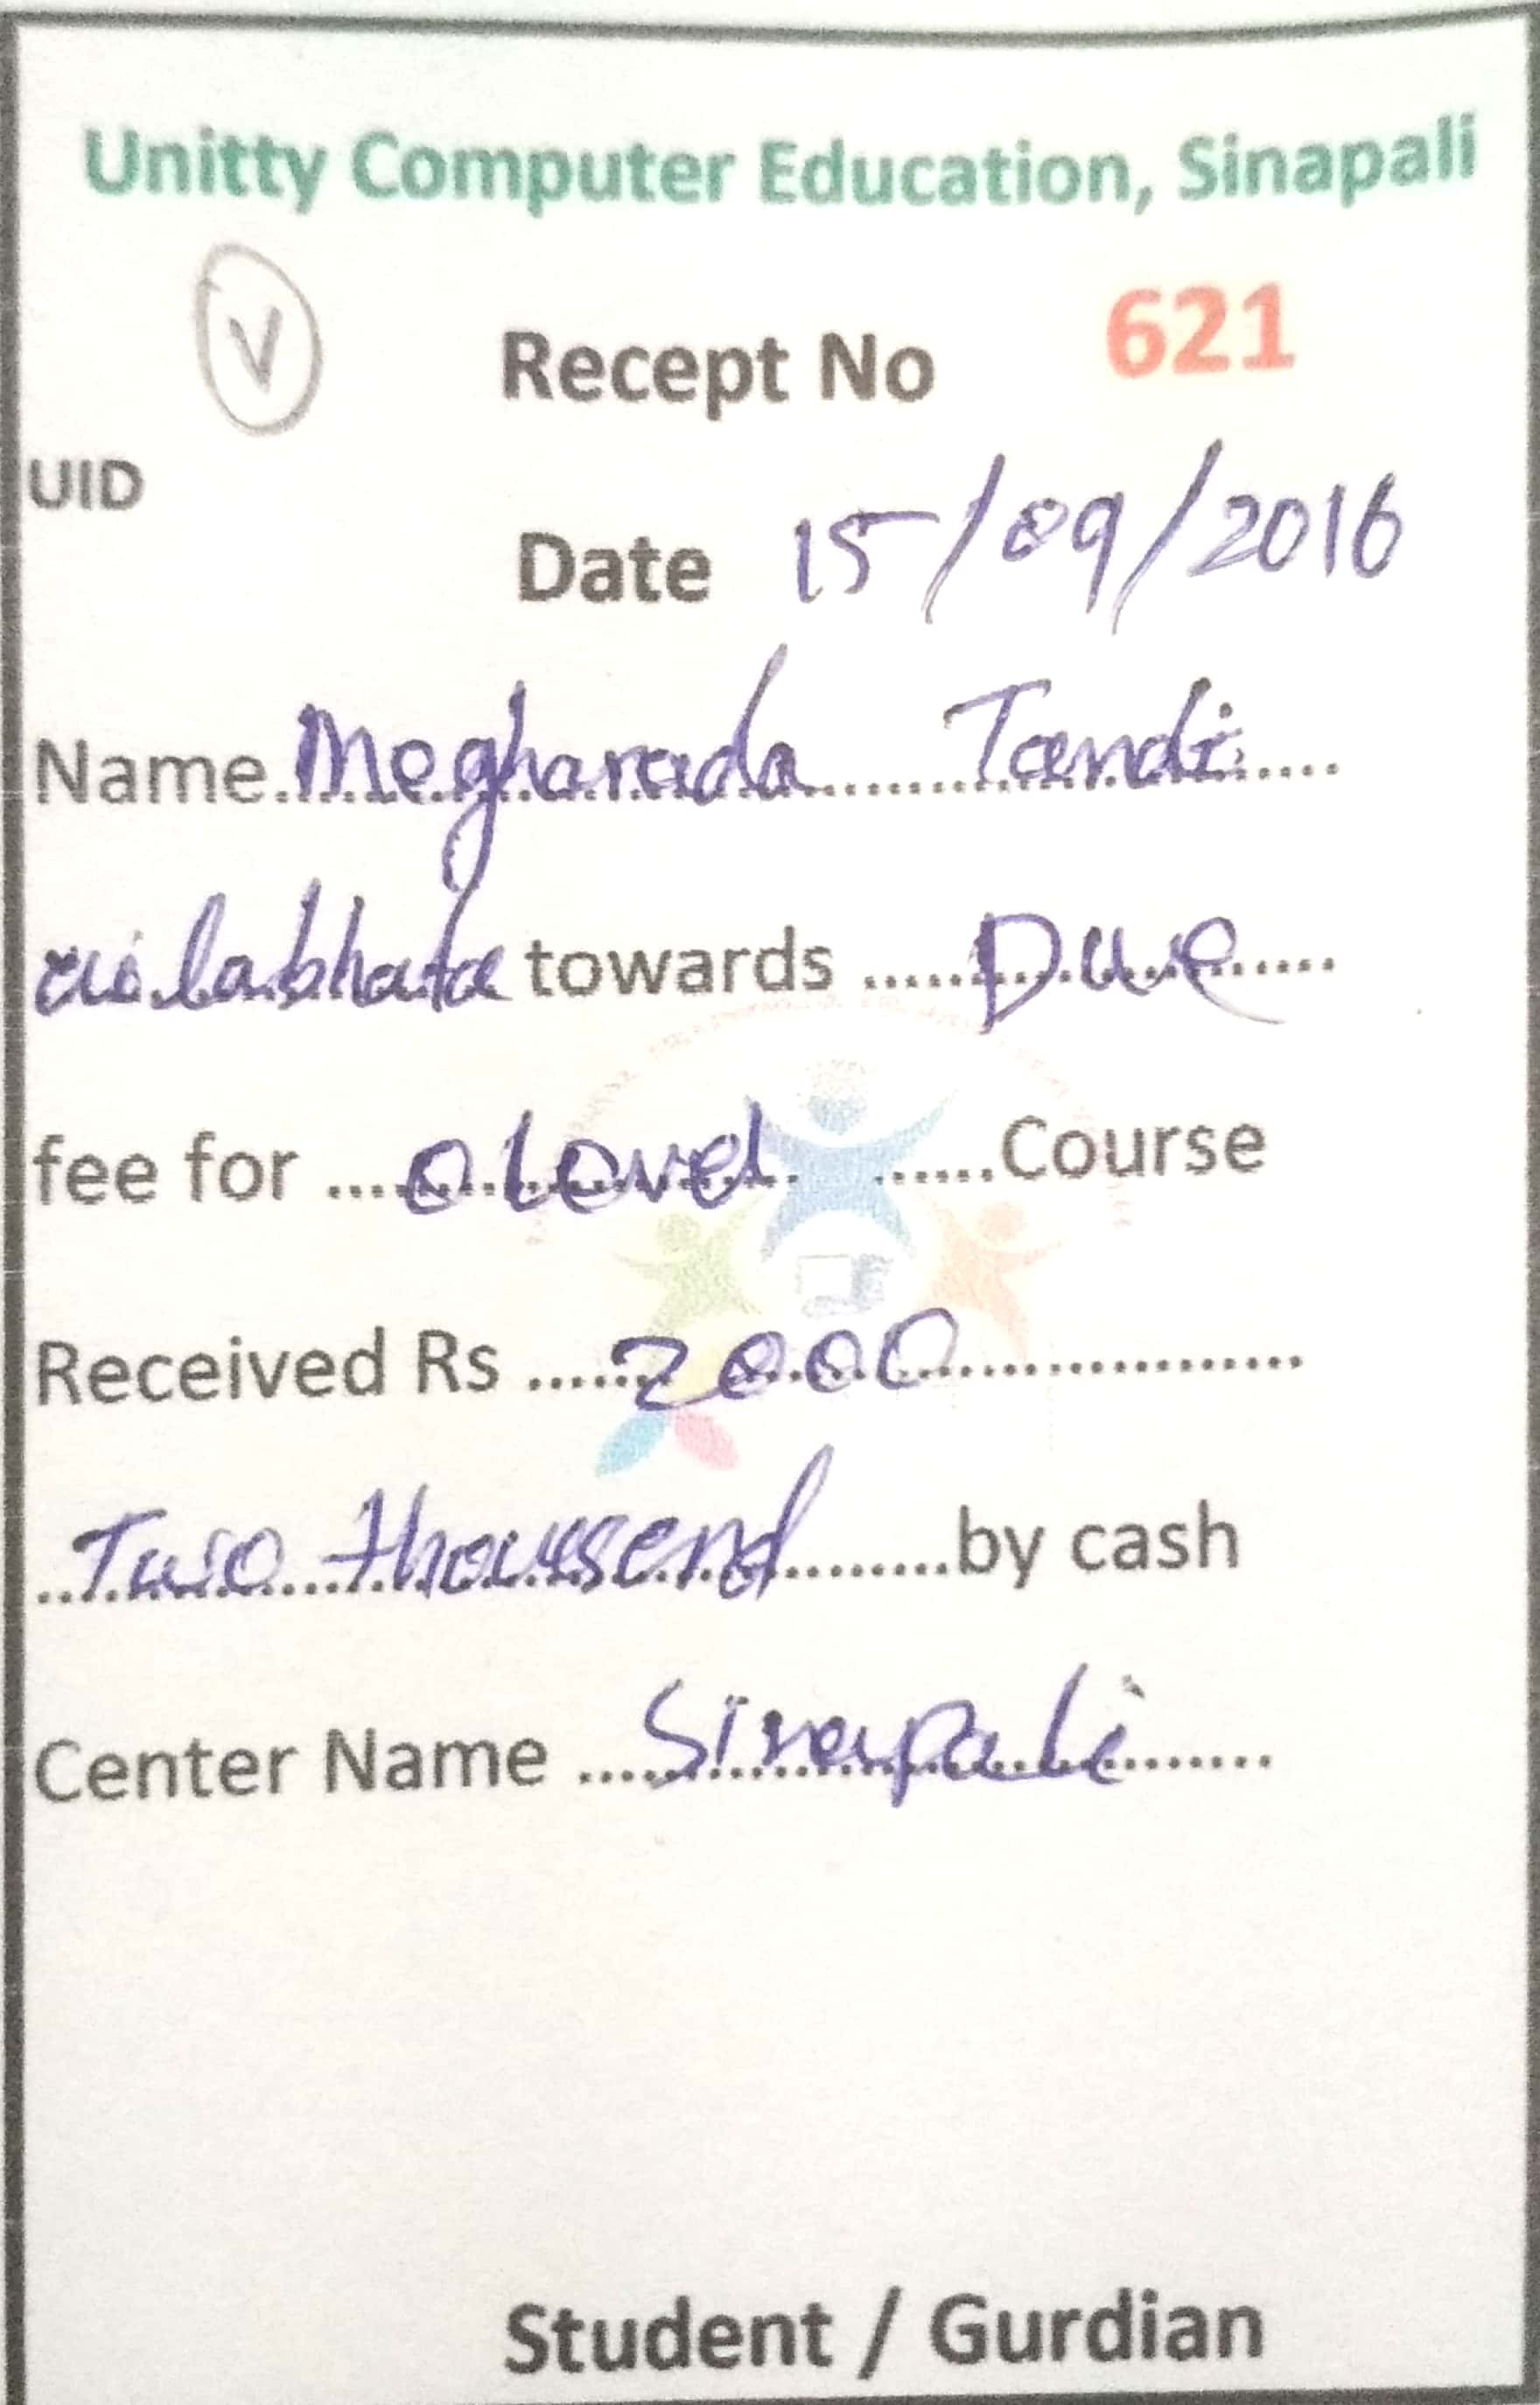 Unitty Computer Education, Sinapali
V
Recept No 621
UID
Date 15/09/2016
Name Megharada Tandi
towards Due
fee for o Level Course
Received Rs 2000
Two thousend by cash
Center Name Sinapali
Student / Gurdian